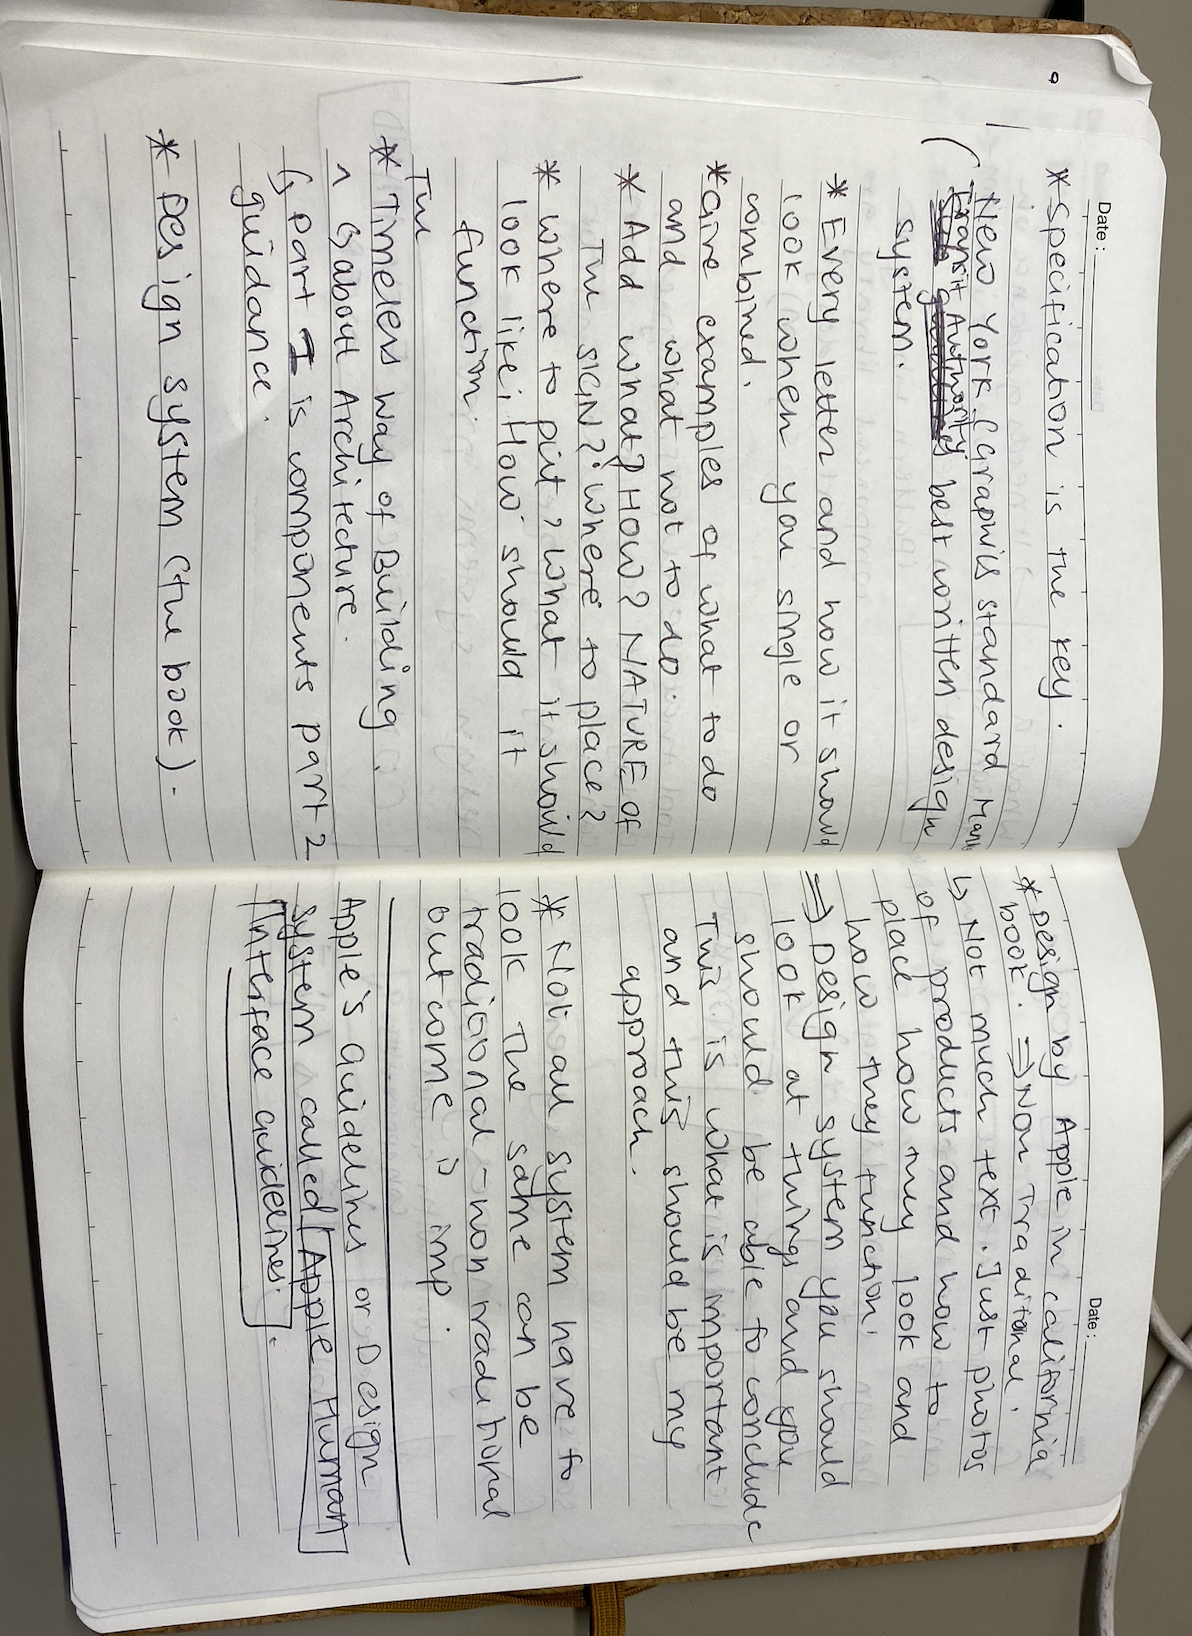 Date:
* Specification is the key.
New York (Graphics standard Manu
( Transit Authority best written design
system.
* Every letter and how it should
look when you single or
combined.
* Give examples of what to do
and what not to do.
* Add what? How? NATURE OF
The SIGN? Where to place?
* where to put, what it should
look like, How should it
function.
The
* Timeless way of Building.
^ ↳ about Architecture.
↳ Part I is components part 2
guidance.
* Design system (the book).
Date:
* Design by Apple in California
book. ⇒ Non Traditonal.
↳ Not much text. Just photos
of products and how to
place how they look and
how they function.
⇒ Design system you should
look at things and you
should be able to conclude
This is what is important
and this should be my
approach.
* Not all system have to
look the same can be
traditional - non traditional
outcome is imp.
Apple's Guidelines or Design
system called Apple Human
Interface Guidelines.